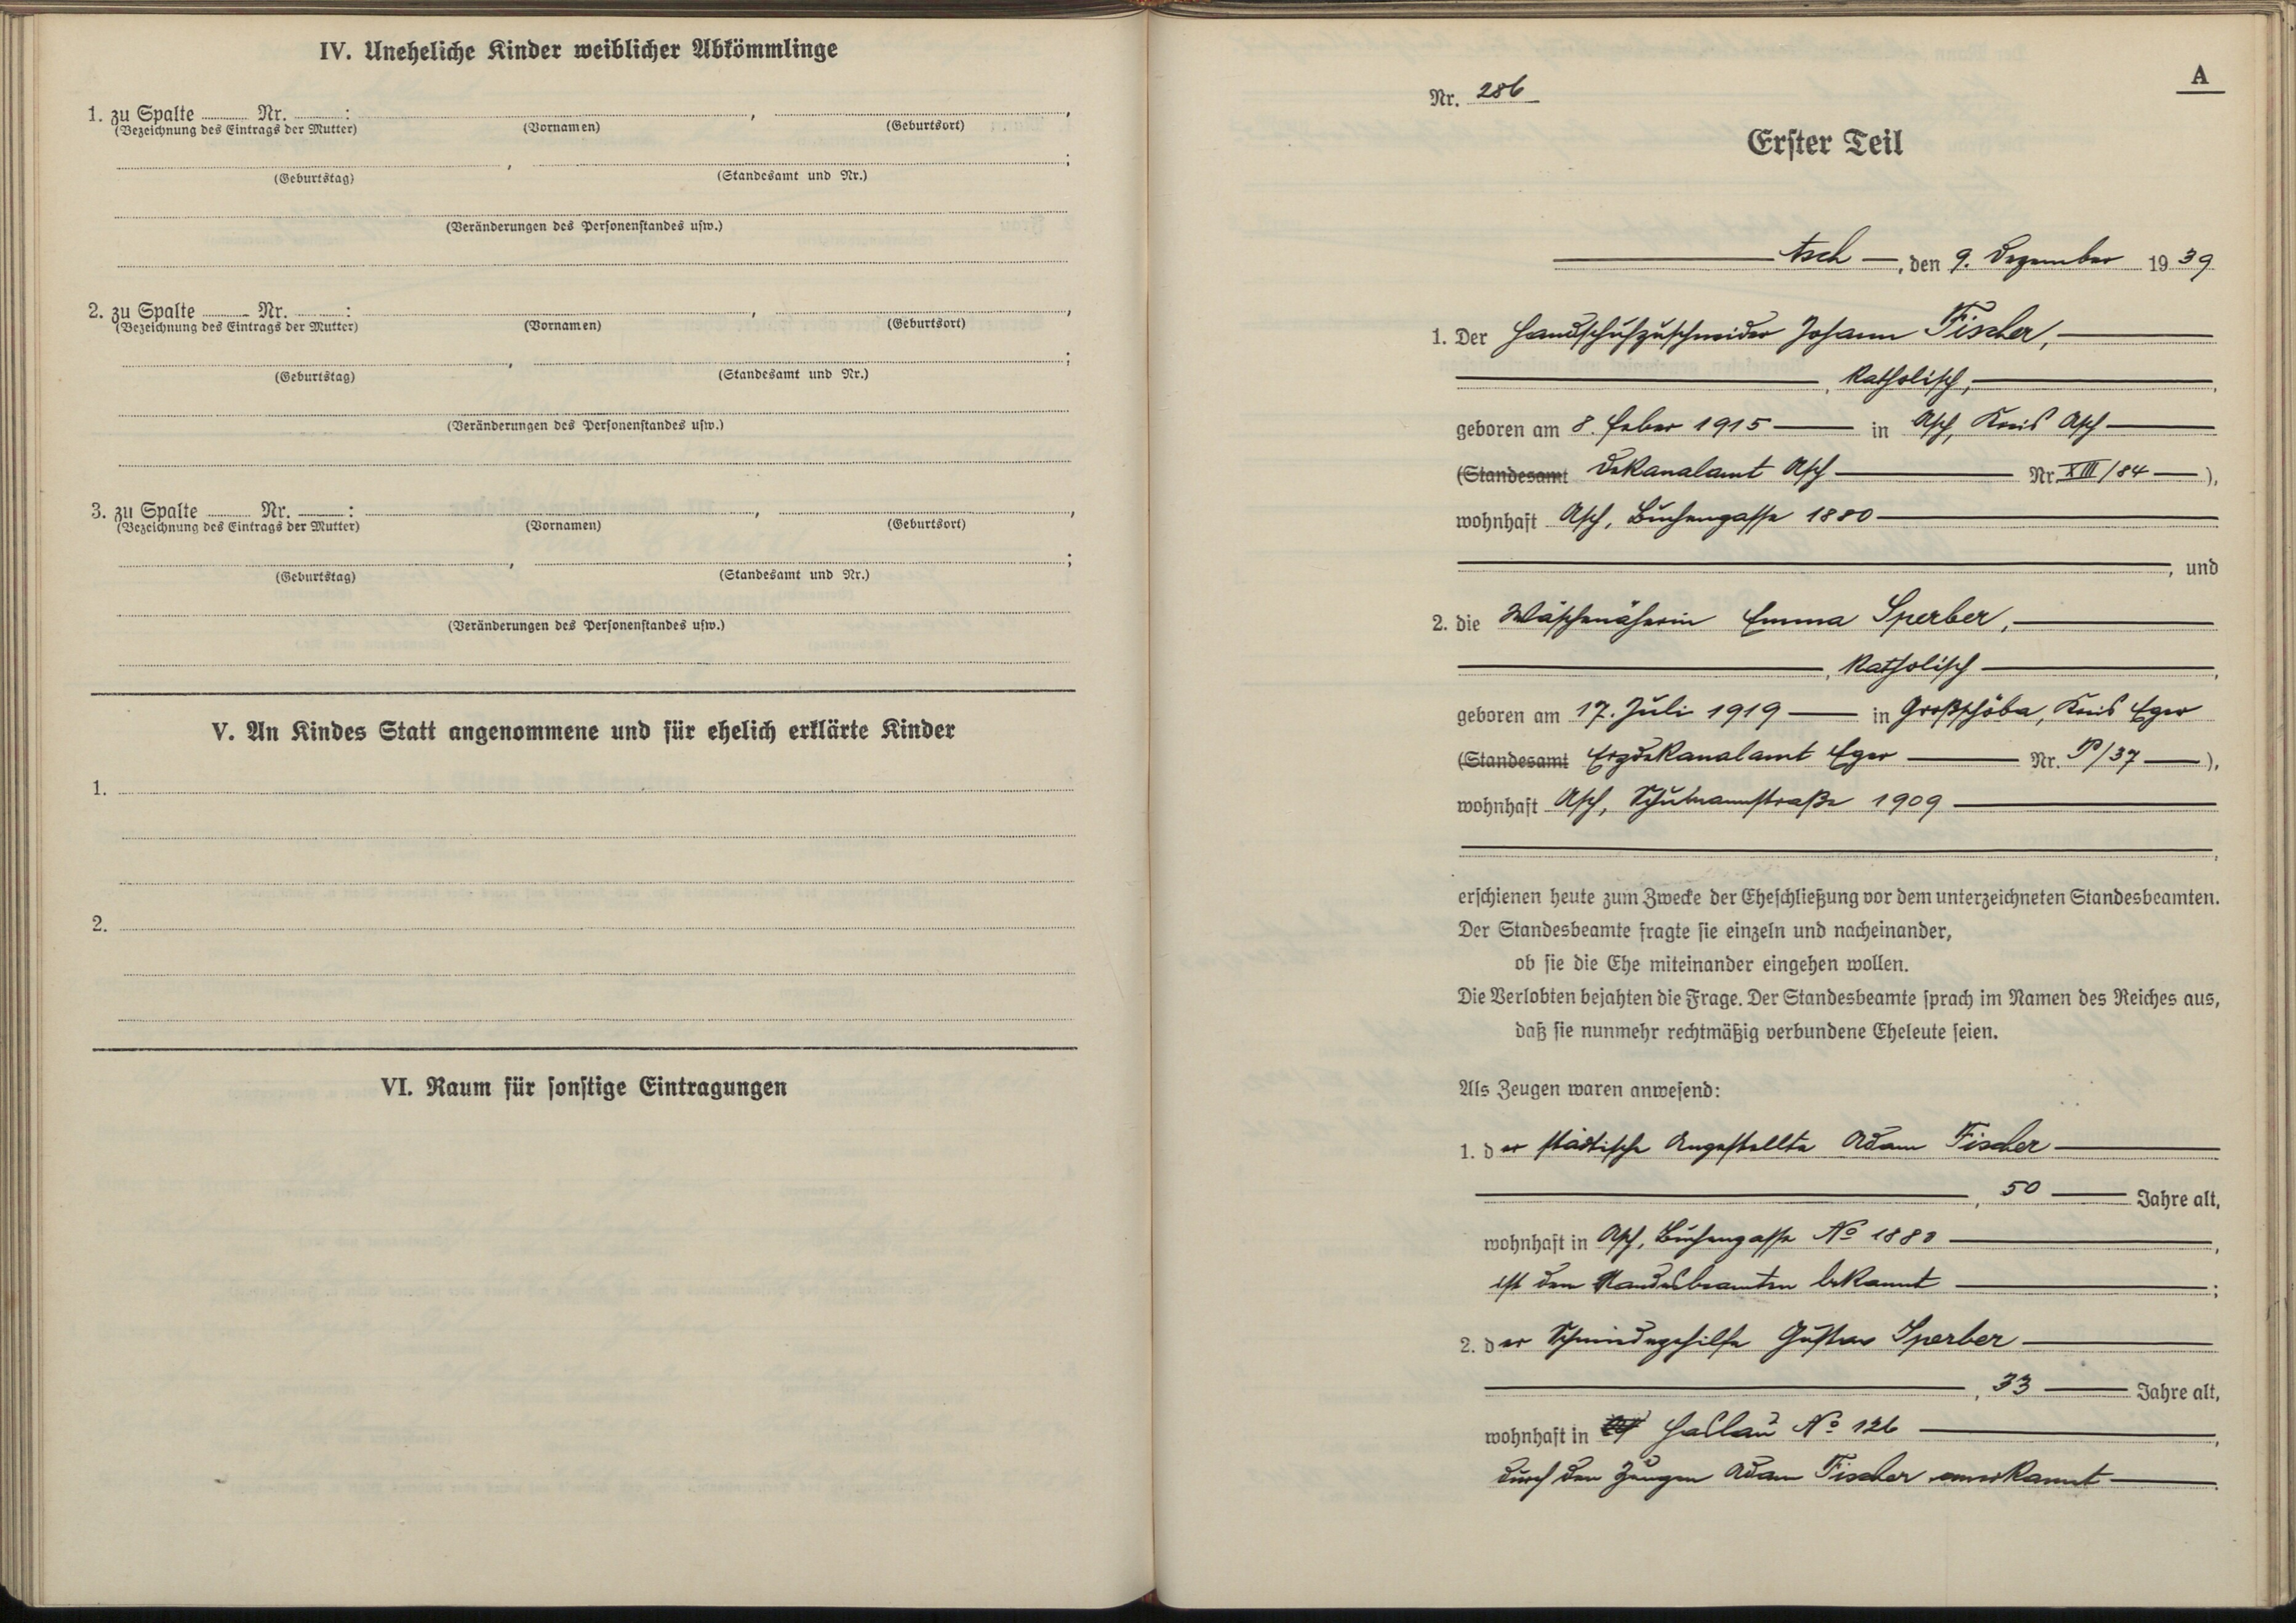 IV. Uneheliche Kinder weiblicher Abkömmlinge
1. zu Spalte ........ Nr. ........ :
(Bezeichnung des Eintrags der Mutter) (Vornamen) (Geburtsort)
(Geburtstag) (Standesamt und Nr.)
(Veränderungen des Personenstandes usw.)
2. zu Spalte ........ Nr. ........ :
(Bezeichnung des Eintrags der Mutter) (Vornamen) (Geburtsort)
(Geburtstag) (Standesamt und Nr.)
(Veränderungen des Personenstandes usw.)
3. zu Spalte ........ Nr. ........ :
(Bezeichnung des Eintrags der Mutter) (Vornamen) (Geburtsort)
(Geburtstag) (Standesamt und Nr.)
(Veränderungen des Personenstandes usw.)
V. An Kindes Statt angenommene und für ehelich erklärte Kinder
1.
2.
VI. Raum für sonstige Eintragungen
A
Nr. 286
Erster Teil
Asch, den 9. Dezember 1939
1. Der Handschuhzuschneider Johann Fischer,
, katholisch,
geboren am 8. Feber 1915 in Asch, Kreis Asch
(Standesamt Dekanalamt Asch Nr. XIII/84),
wohnhaft Asch, Buchengasse 1880
, und
2. die Wäschenäherin Emma Sperber,
, katholisch
geboren am 17. Juli 1919 in Großschöba, Kreis Eger
(Standesamt Erzdekanalamt Eger Nr. P/37),
wohnhaft Asch, 1909
erschienen heute zum Zwecke der Eheschließung vor dem unterzeichneten Standesbeamten.
Der Standesbeamte fragte sie einzeln und nacheinander,
ob sie die Ehe miteinander eingehen wollen.
Die Verlobten bejahten die Frage. Der Standesbeamte sprach im Namen des Reiches aus,
daß sie nunmehr rechtmäßig verbundene Eheleute seien.
Als Zeugen waren anwesend:
1. der städtische Angestellte Adam Fischer
, 50 Jahre alt,
wohnhaft in Asch, Buchengasse No 1880,
ist dem Standesbeamten bekannt;
2. der Schmiedegehilfe Gustav Sperber
, 33 Jahre alt,
wohnhaft in Haslau No 126,
durch den Zeugen Adam Fischer anerkannt.